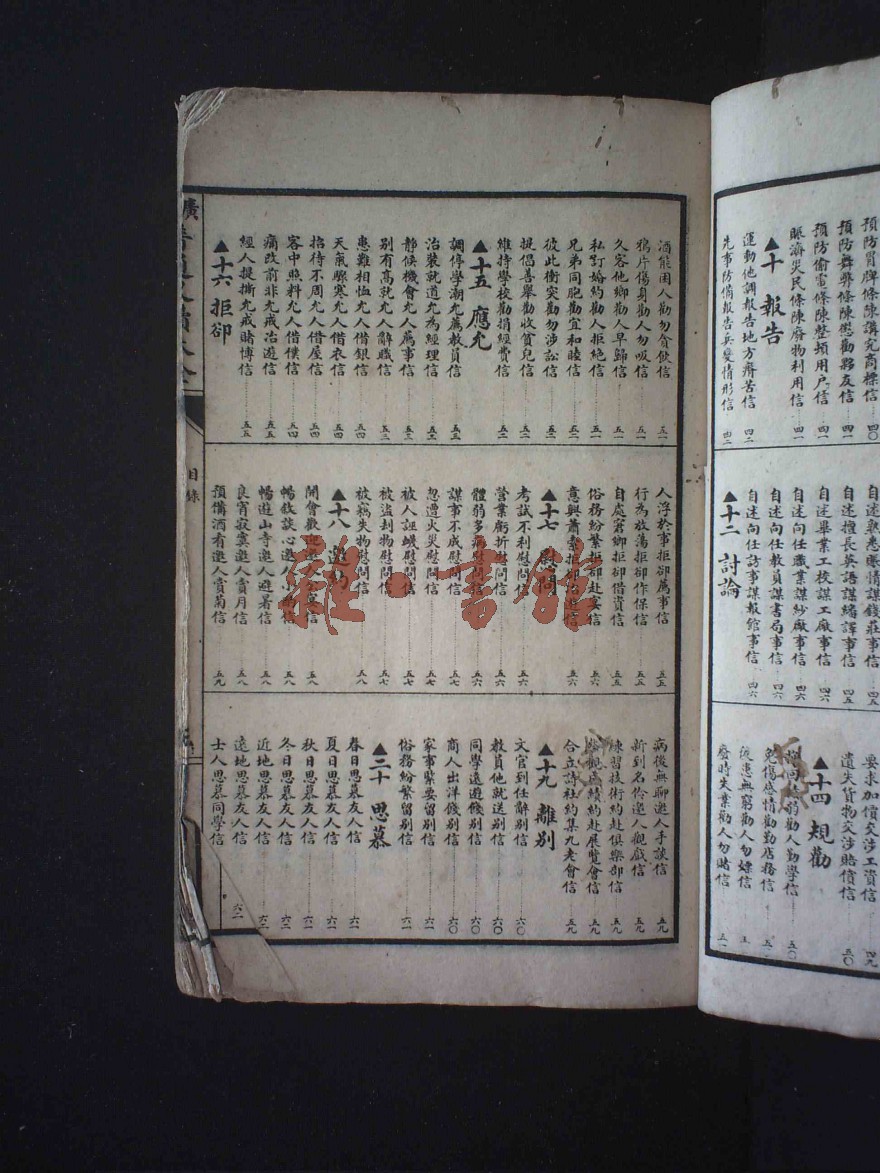 預防冒牌條陳講究商標信 四〇
預防舞弊條陳懲勸夥友信 四一
預防偷電條陳整頓用戶信 四一
賑濟災民條陳廢物利用信 四一
▲十 報告
運動他調報告地方瘠苦信 四二
先事防備報告兵變情形信 四二
自述熟悉賬情謀錢莊事信 四五
自述擅長英語謀繙譯事信 四五
自述畢業工校謀工廠事信 四六
自述向任職業謀紗廠事信 四六
自述向任教員謀書局事信 四六
自述向任訪事謀報館事信 四六
▲十二 討論
要求加價交涉工資信 四九
遺失貨物交涉賠償信 五〇
▲十四 規勸
勸人勤學信 五〇
免傷感情勸勤店務信
後患無窮勸人勿嫖信
廢時失業勸人勿賭信
酒能困人勸勿貪飲信 五一
鴉片傷身勸人勿吸信 五一
久客他鄉勸人早歸信 五一
私訂婚約勸人拒絕信 五一
兄弟同胞勸宜和睦信 五一
彼此衝突勸勿涉訟信 五二
提倡善舉勸收貧兒信 五二
維持學校勸捐經費信 五二
▲十五 應允
調停學潮允薦教員信 五三
治裝就道允為經理信 五三
靜候機會允人薦事信 五三
別有高就允人辭職信 五三
患難相恤允人借銀信 五四
天氣驟寒允人借衣信 五四
招待不周允人借屋信 五四
客中照料允人借僕信 五四
痛改前非允戒冶遊信 五五
經人提撕允戒賭博信 五五
▲十六 拒卻
人浮於事拒卻薦事信 五五
行為放蕩拒卻作保信 五五
自處窘鄉拒卻借資信 五五
俗務紛繁拒卻赴宴信 五六
意興蕭索拒卻冶遊信 五六
▲十七 慰問
考試不利慰問信 五六
營業虧折慰問信 五六
體弱多病慰問信 五六
謀事不成慰問信 五七
忽遭火災慰問信 五七
被人誣衊慰問信 五七
被盜刦物慰問信 五七
被竊失物慰問信 五八
▲十八 邀約
開會歡迎邀人宴信 五八
暢敘談心邀人小酌信 五八
暢遊山寺邀人避暑信 五八
良宵寂寞邀人賞月信 五八
預備酒肴邀人賞菊信 五九
病後無聊邀人手談信 五九
新到名伶邀人觀戲信 五九
練習技術約赴俱樂部信 五九
成績約赴展覽會信 五九
合立詩社約集九老會信 五九
▲十九 離別
文官到任辭別信 六〇
教員他就送別信 六〇
同學遠遊餞別信 六〇
商人出洋餞別信 六〇
家事緊要留別信 六一
俗務紛繁留別信 六一
▲二十 思慕
春日思慕友人信 六一
夏日思慕友人信 六一
秋日思慕友人信 六一
冬日思慕友人信 六二
近地思慕友人信 六二
遠地思慕友人信 六二
士人思慕同學信
目錄
雜·書館